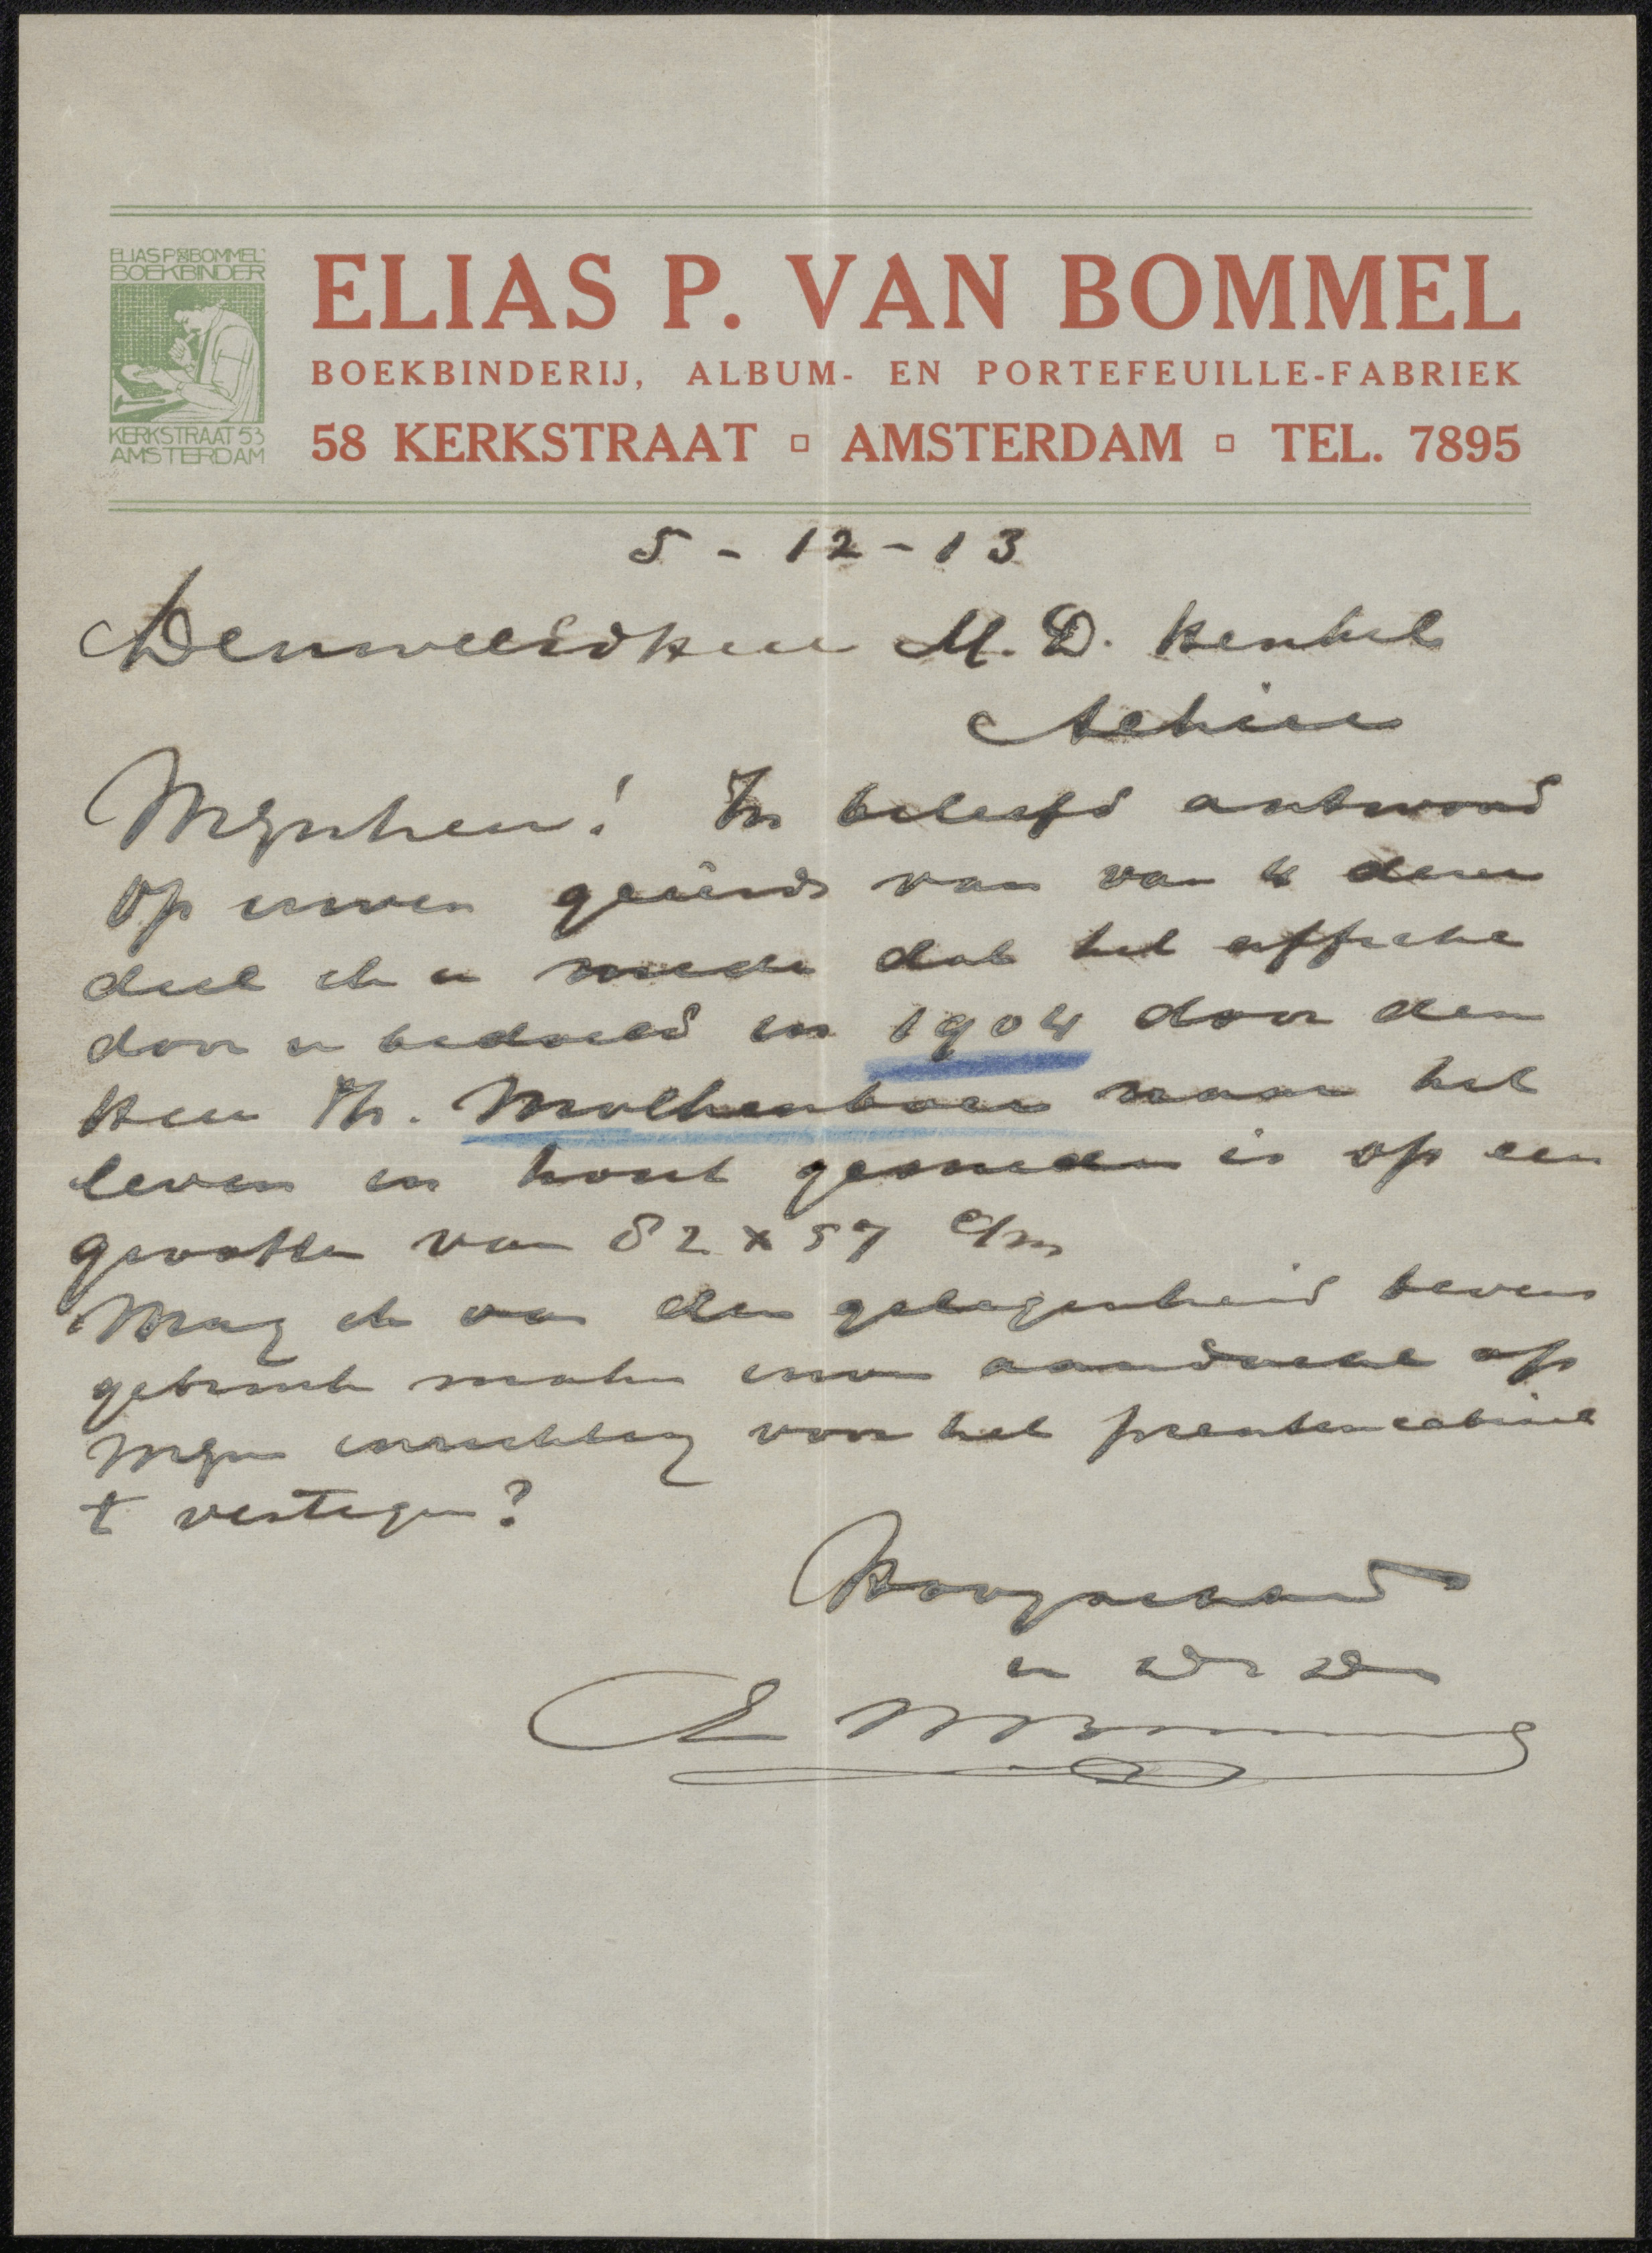 ELIAS P. V BOMMEL
BOEKBINDER
KERKSTRAAT 53
AMSTERDAM
ELIAS P. VAN BOMMEL
BOEKBINDERIJ, ALBUM- EN PORTEFEUILLE-FABRIEK
58 KERKSTRAAT ▫ AMSTERDAM ▫ TEL. 7895
5 - 12 - 13
Denweledheer M. D. Henkel
Alhier
Mynheer! In beleefd antwoord
op uwen geëerde van van 4 dezer
deel ik u mede dat het affiche
door u bedoeld in 1904 door den
Heer Th. Molkenboer naar het
leven in hout gesneden is op een
grootte van 82 x 57 c/m
Mag ik van den gelegenheid tevens
gebruik maken uwe aandacht op
myn inrichting voor het prentencabinet
t vestegen?
Hoogachtend
u dw dn
E P v Bommel